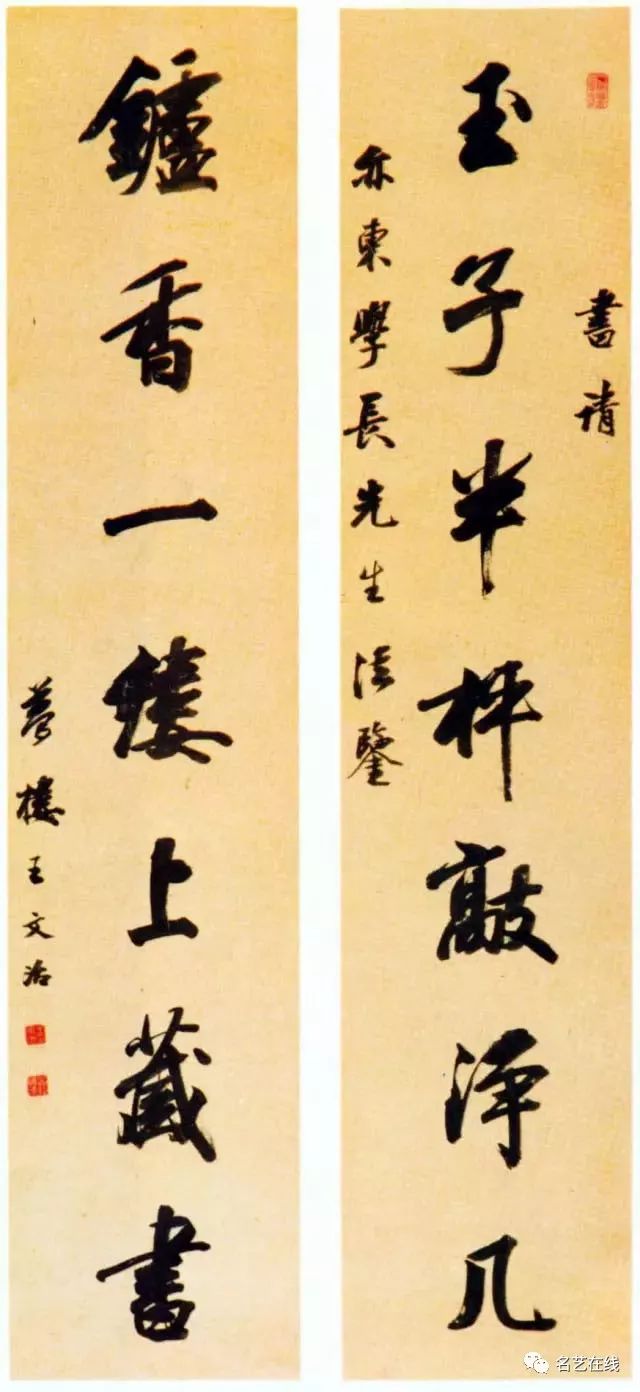 書請
玉子半枰敲淨几
亦東學長先生法鑒
鑪香一縷上藏書
夢樓王文治
名艺在线